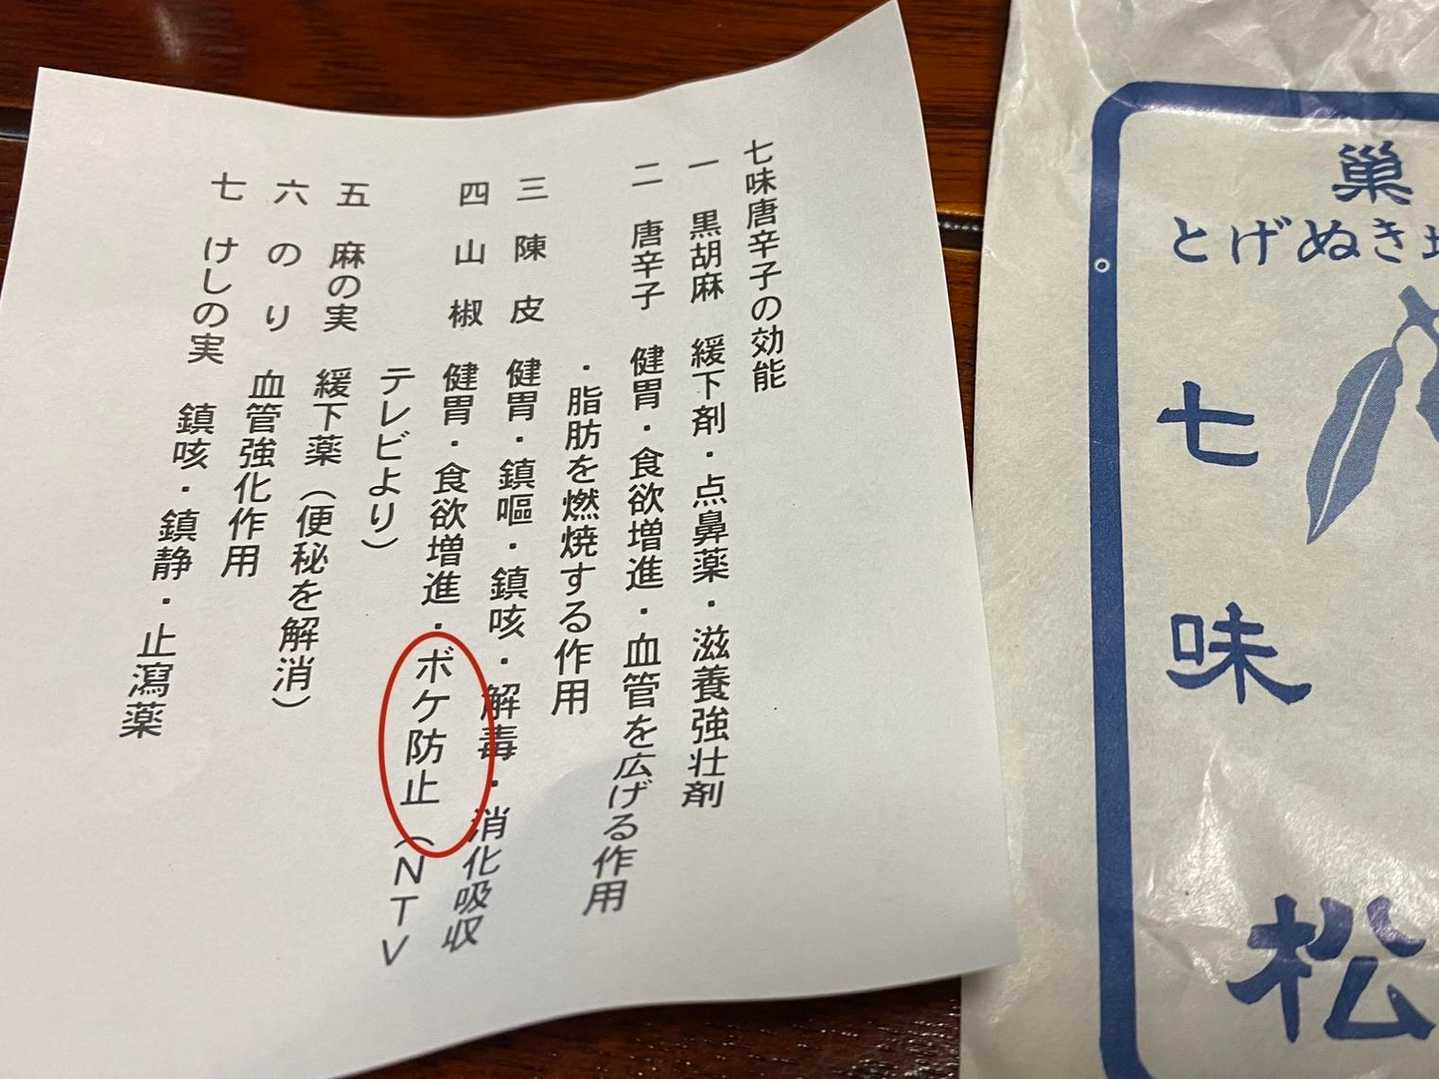 七味唐辛子の効能
一 黒胡麻 緩下剤・点鼻薬・滋養強壮剤
二 唐辛子 健胃・食欲増進・血管を広げる作用
・脂肪を燃焼する作用
三 陳皮 健胃・鎮嘔・鎮咳・解毒・消化吸収
四 山椒 健胃・食欲増進・ボケ防止(NTV
テレビより)
五 麻の実 緩下薬(便秘を解消)
六 のり 血管強化作用
七 けしの実 鎮咳・鎮静・止瀉薬
巣
とげぬき
七味
松